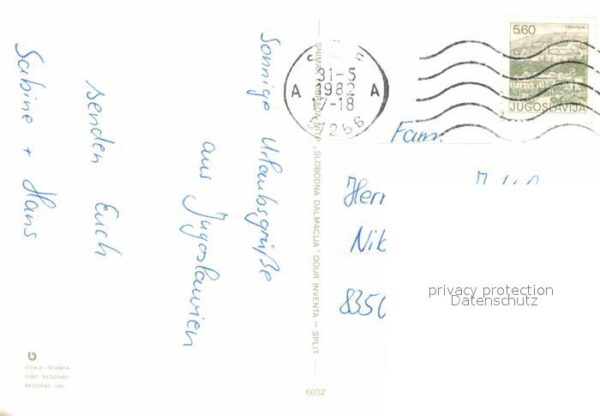 Sonnige Urlaubsgrüße
aus Jugoslawien
senden Euch
Sabine + Hans
SLOBODNA DALMACIJA" OOUR INVENTA — SPLIT
31-5
A 1982 A
17-18
5.60
JUGOSLAVIJA
Fam.
Nik
8350
privacy protection
Datenschutz
6032